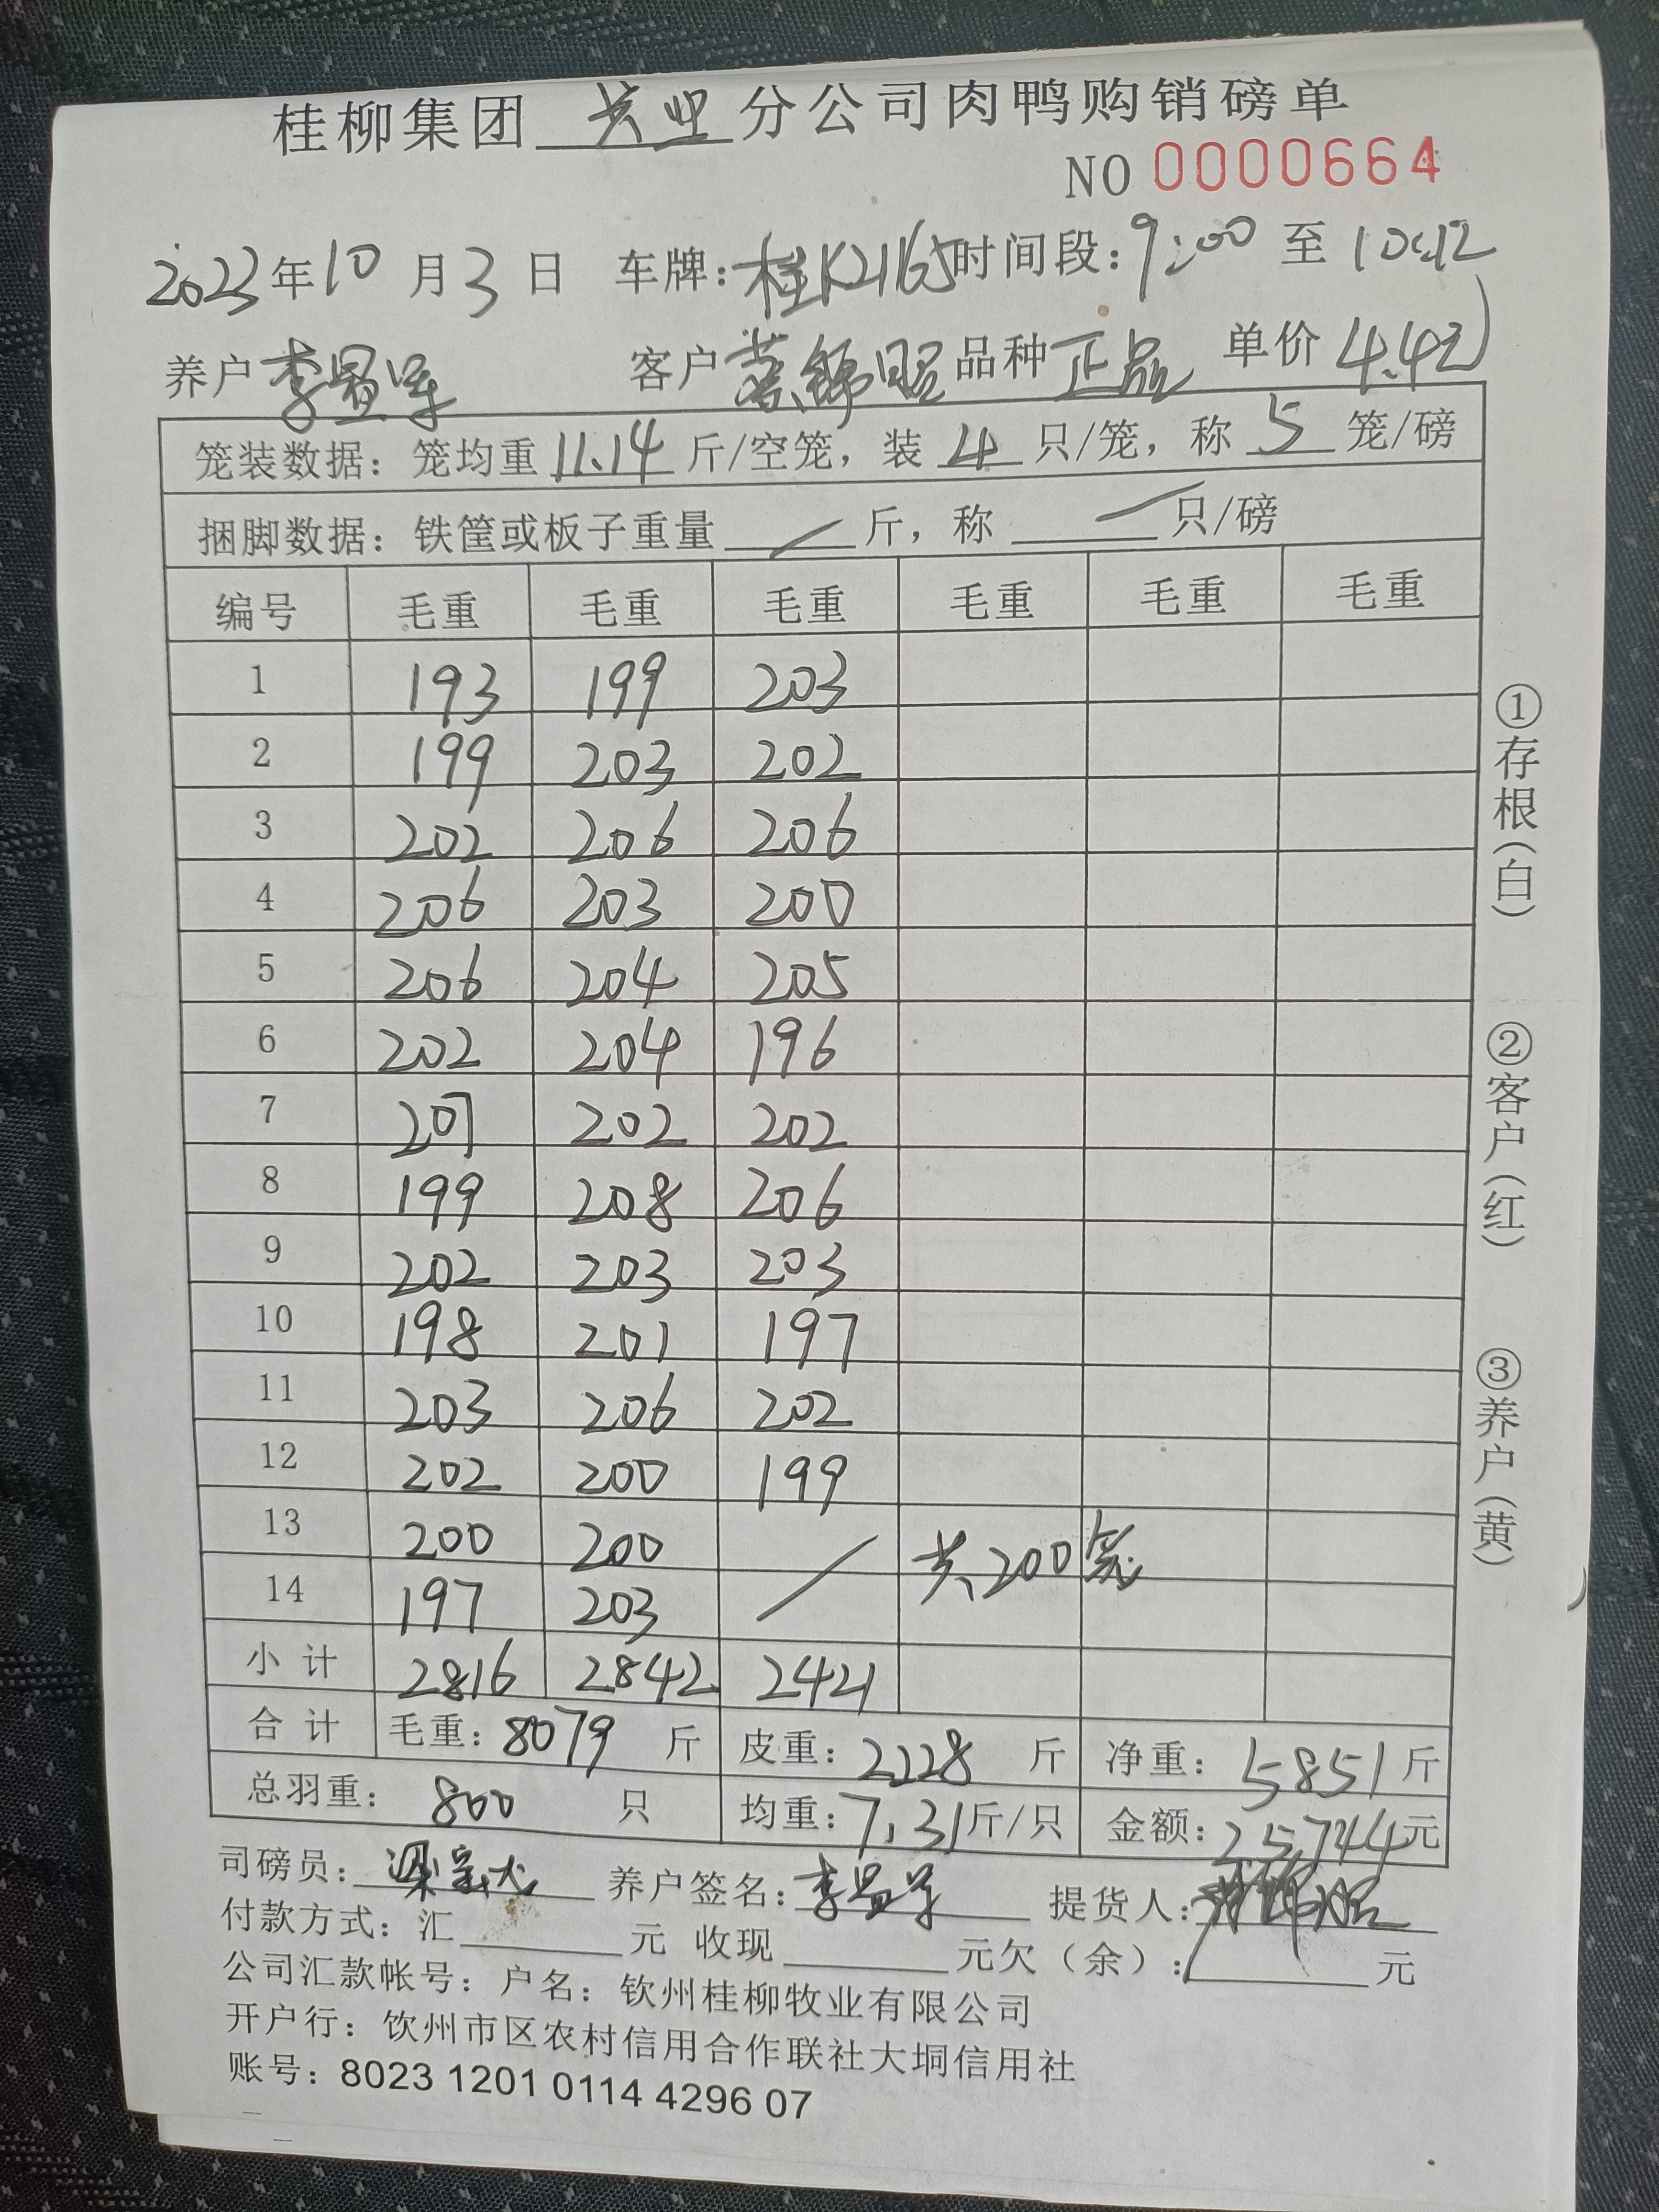 桂柳集团 分公司肉鸭购销磅单
NO 0000664
2023年10月3日 车牌:桂K21165时间段:9:00至10:12
养户李显军 客户 品种正品 单价4.4元
笼装数据:笼均重11.14斤/空笼,装4只/笼,称5笼/磅
捆脚数据:铁筐或板子重量 / 斤,称 / 只/磅
编号 毛重 毛重 毛重 毛重 毛重 毛重
1 193 199 203
2 199 203 202
3 202 206 206
4 206 203 200
5 206 204 205
6 202 204 196
7 207 202 202
8 199 208 206
9 202 203 203
10 198 201 197
11 203 206 202
12 202 200 199
13 200 200 / 共200笼
14 197 203
小计 2816 2842 2421
合计 毛重:8079斤 皮重:2228斤 净重:5851斤
总羽重:800只 均重:7.31斤/只 金额:25744元
司磅员: 养户签名:李显军 提货人:
付款方式:汇 元 收现 元欠(余): 元
公司汇款帐号:户名:钦州桂柳牧业有限公司
开户行:饮州市区农村信用合作联社大垌信用社
账号:8023 1201 0114 4296 07
①存根(白) ②客户(红) ③养户(黄)